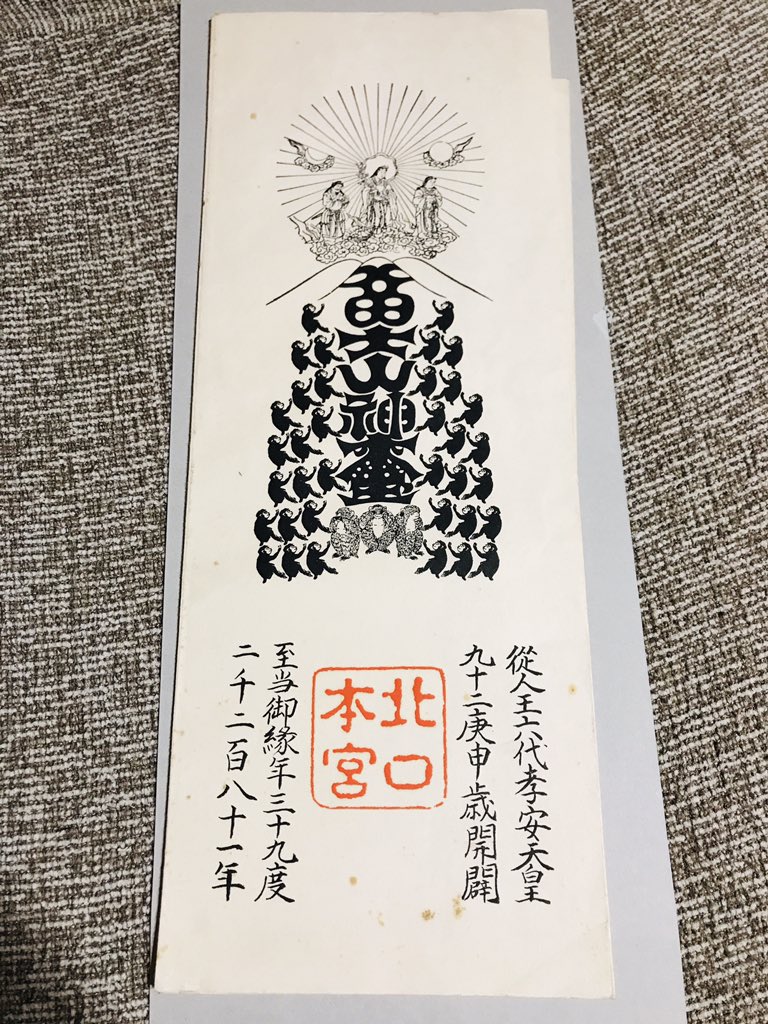 冨士山神
從人王六代孝安天皇
九十二庚申歳開闢
北口
本宮
至当御縁年三十九度
二千二百八十一年